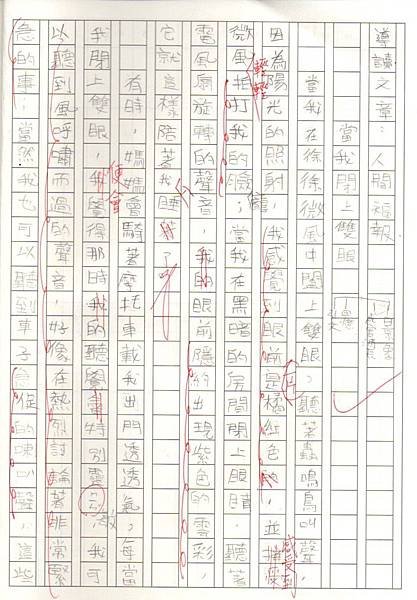 導讀文章：人間福報
當我閉上雙眼
當我在徐徐微風中闔上雙眼，聽著蟲鳴鳥叫聲，
因為陽光的照射，我感覺到眼前是橘紅色的，並感受到
微風輕輕拍打我的臉；當我在黑暗的房間閉上眼睛，聽著
電風扇旋轉的聲音，我的眼前隱約出現紫色的雲彩，
它就這樣陪著我睡著了。
有時，媽媽會騎著摩托車載我出門透透氣，每當
我閉上雙眼，便會覺得那時我的聽覺特別靈敏，我可
以聽到風呼嘯而過的聲音，好像在熱烈討論著非常緊
急的事；當然我也可以聽到車子急促的喇叭聲，這些